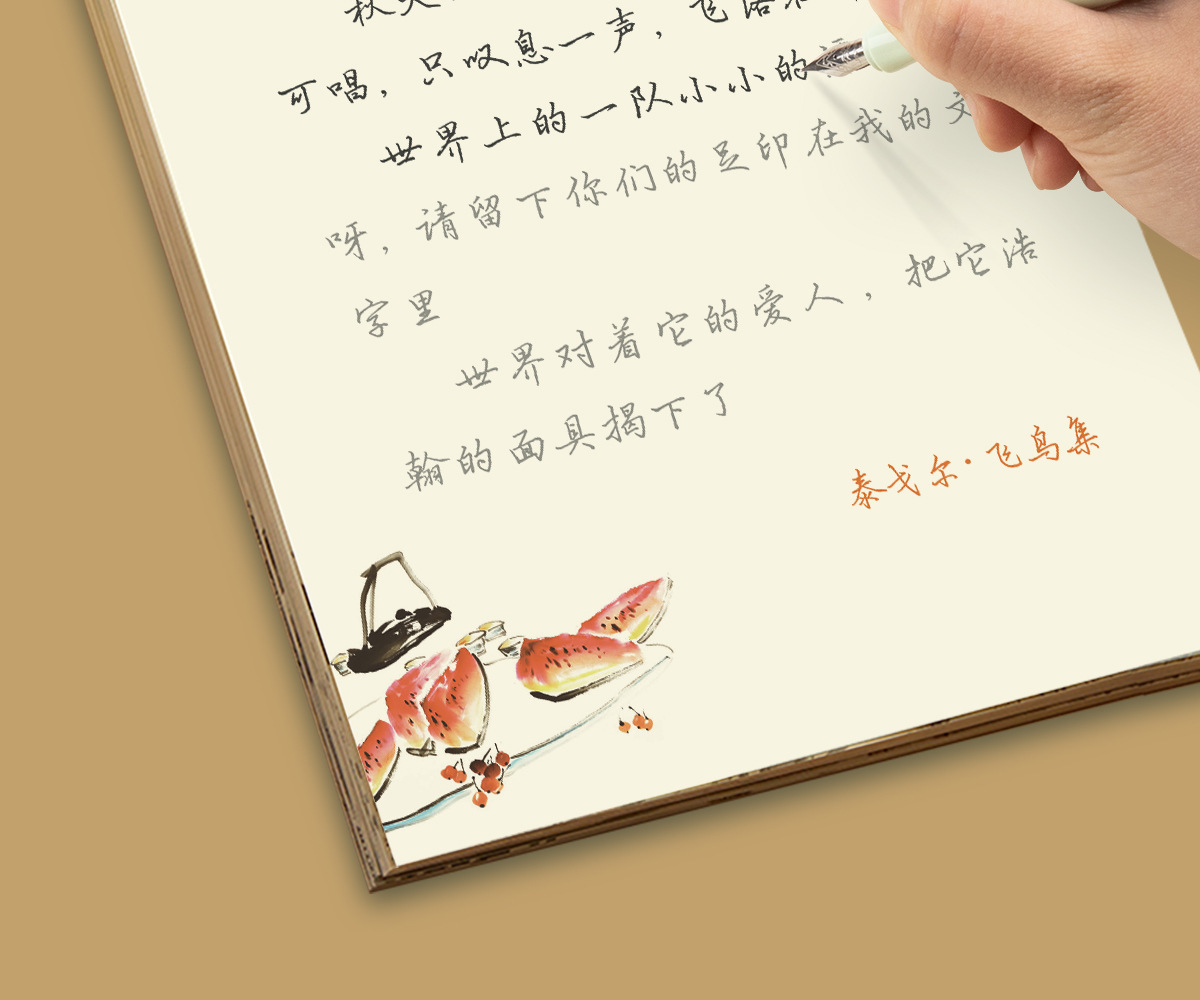 秋天
可唱，只叹息一声，飞落在
世界上的一队小小的
呀，请留下你们的足印在我的文
字里
世界对着它的爱人，把它浩
翰的面具揭下了
泰戈尔·飞鸟集